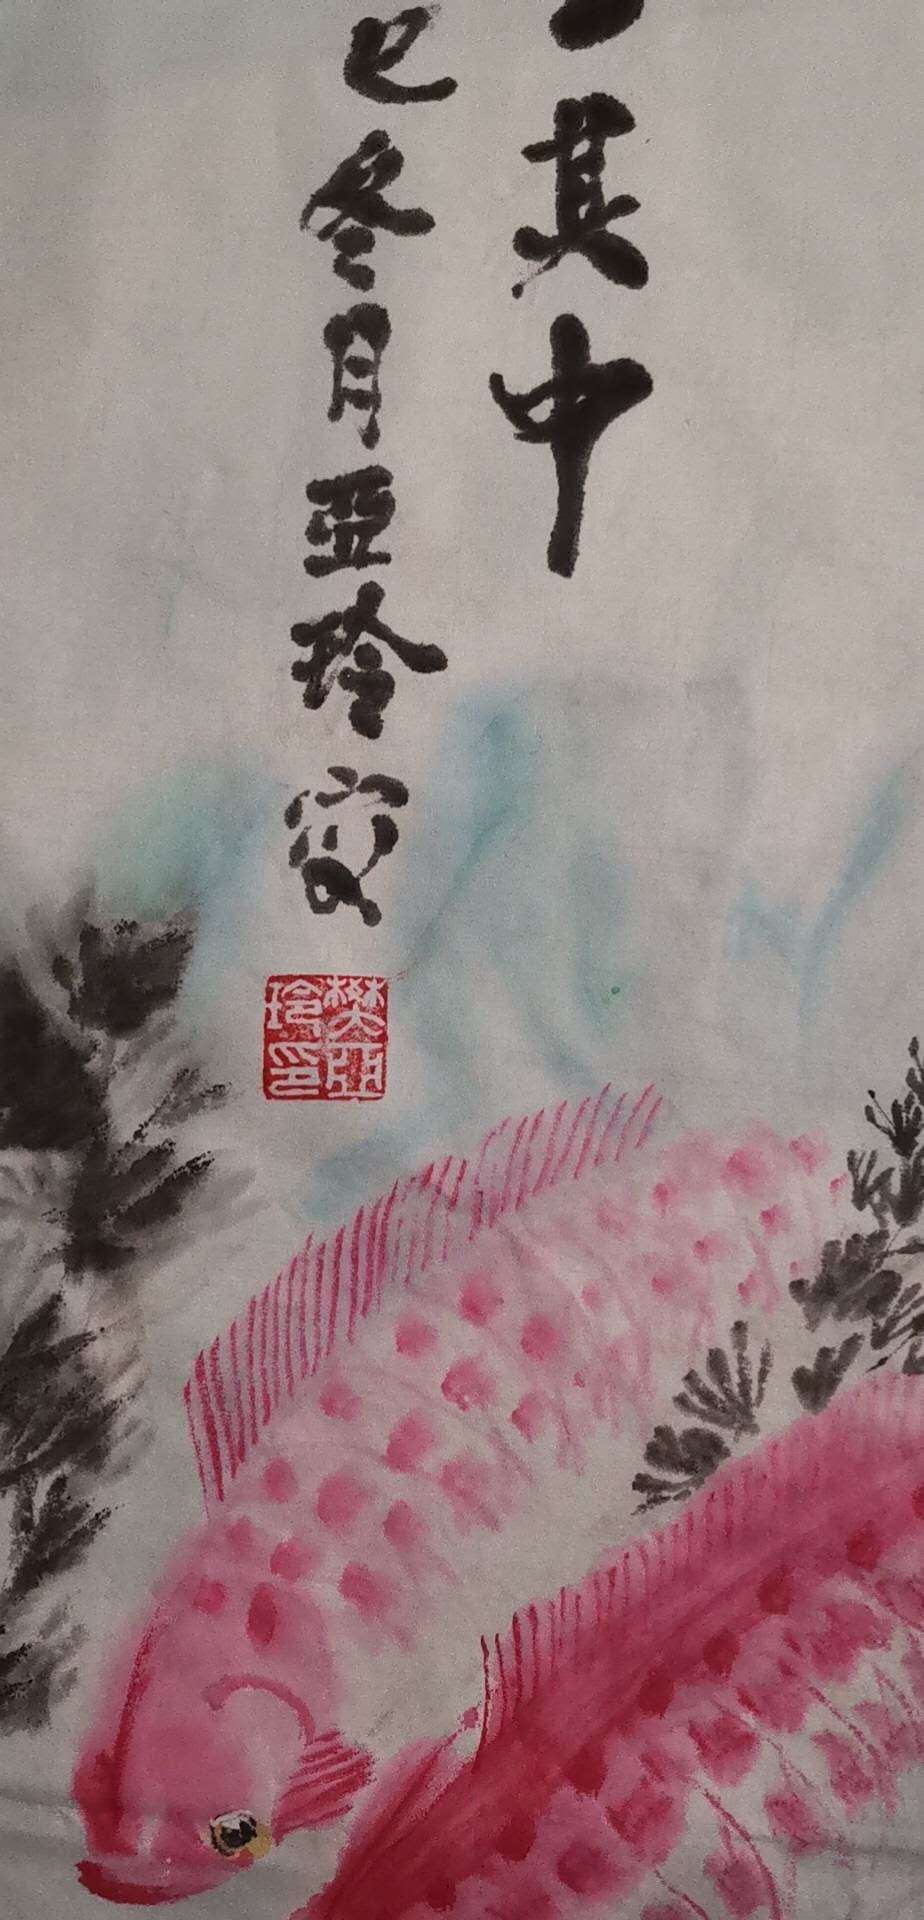 其中
巳冬月亞玲
樊亞
玲印